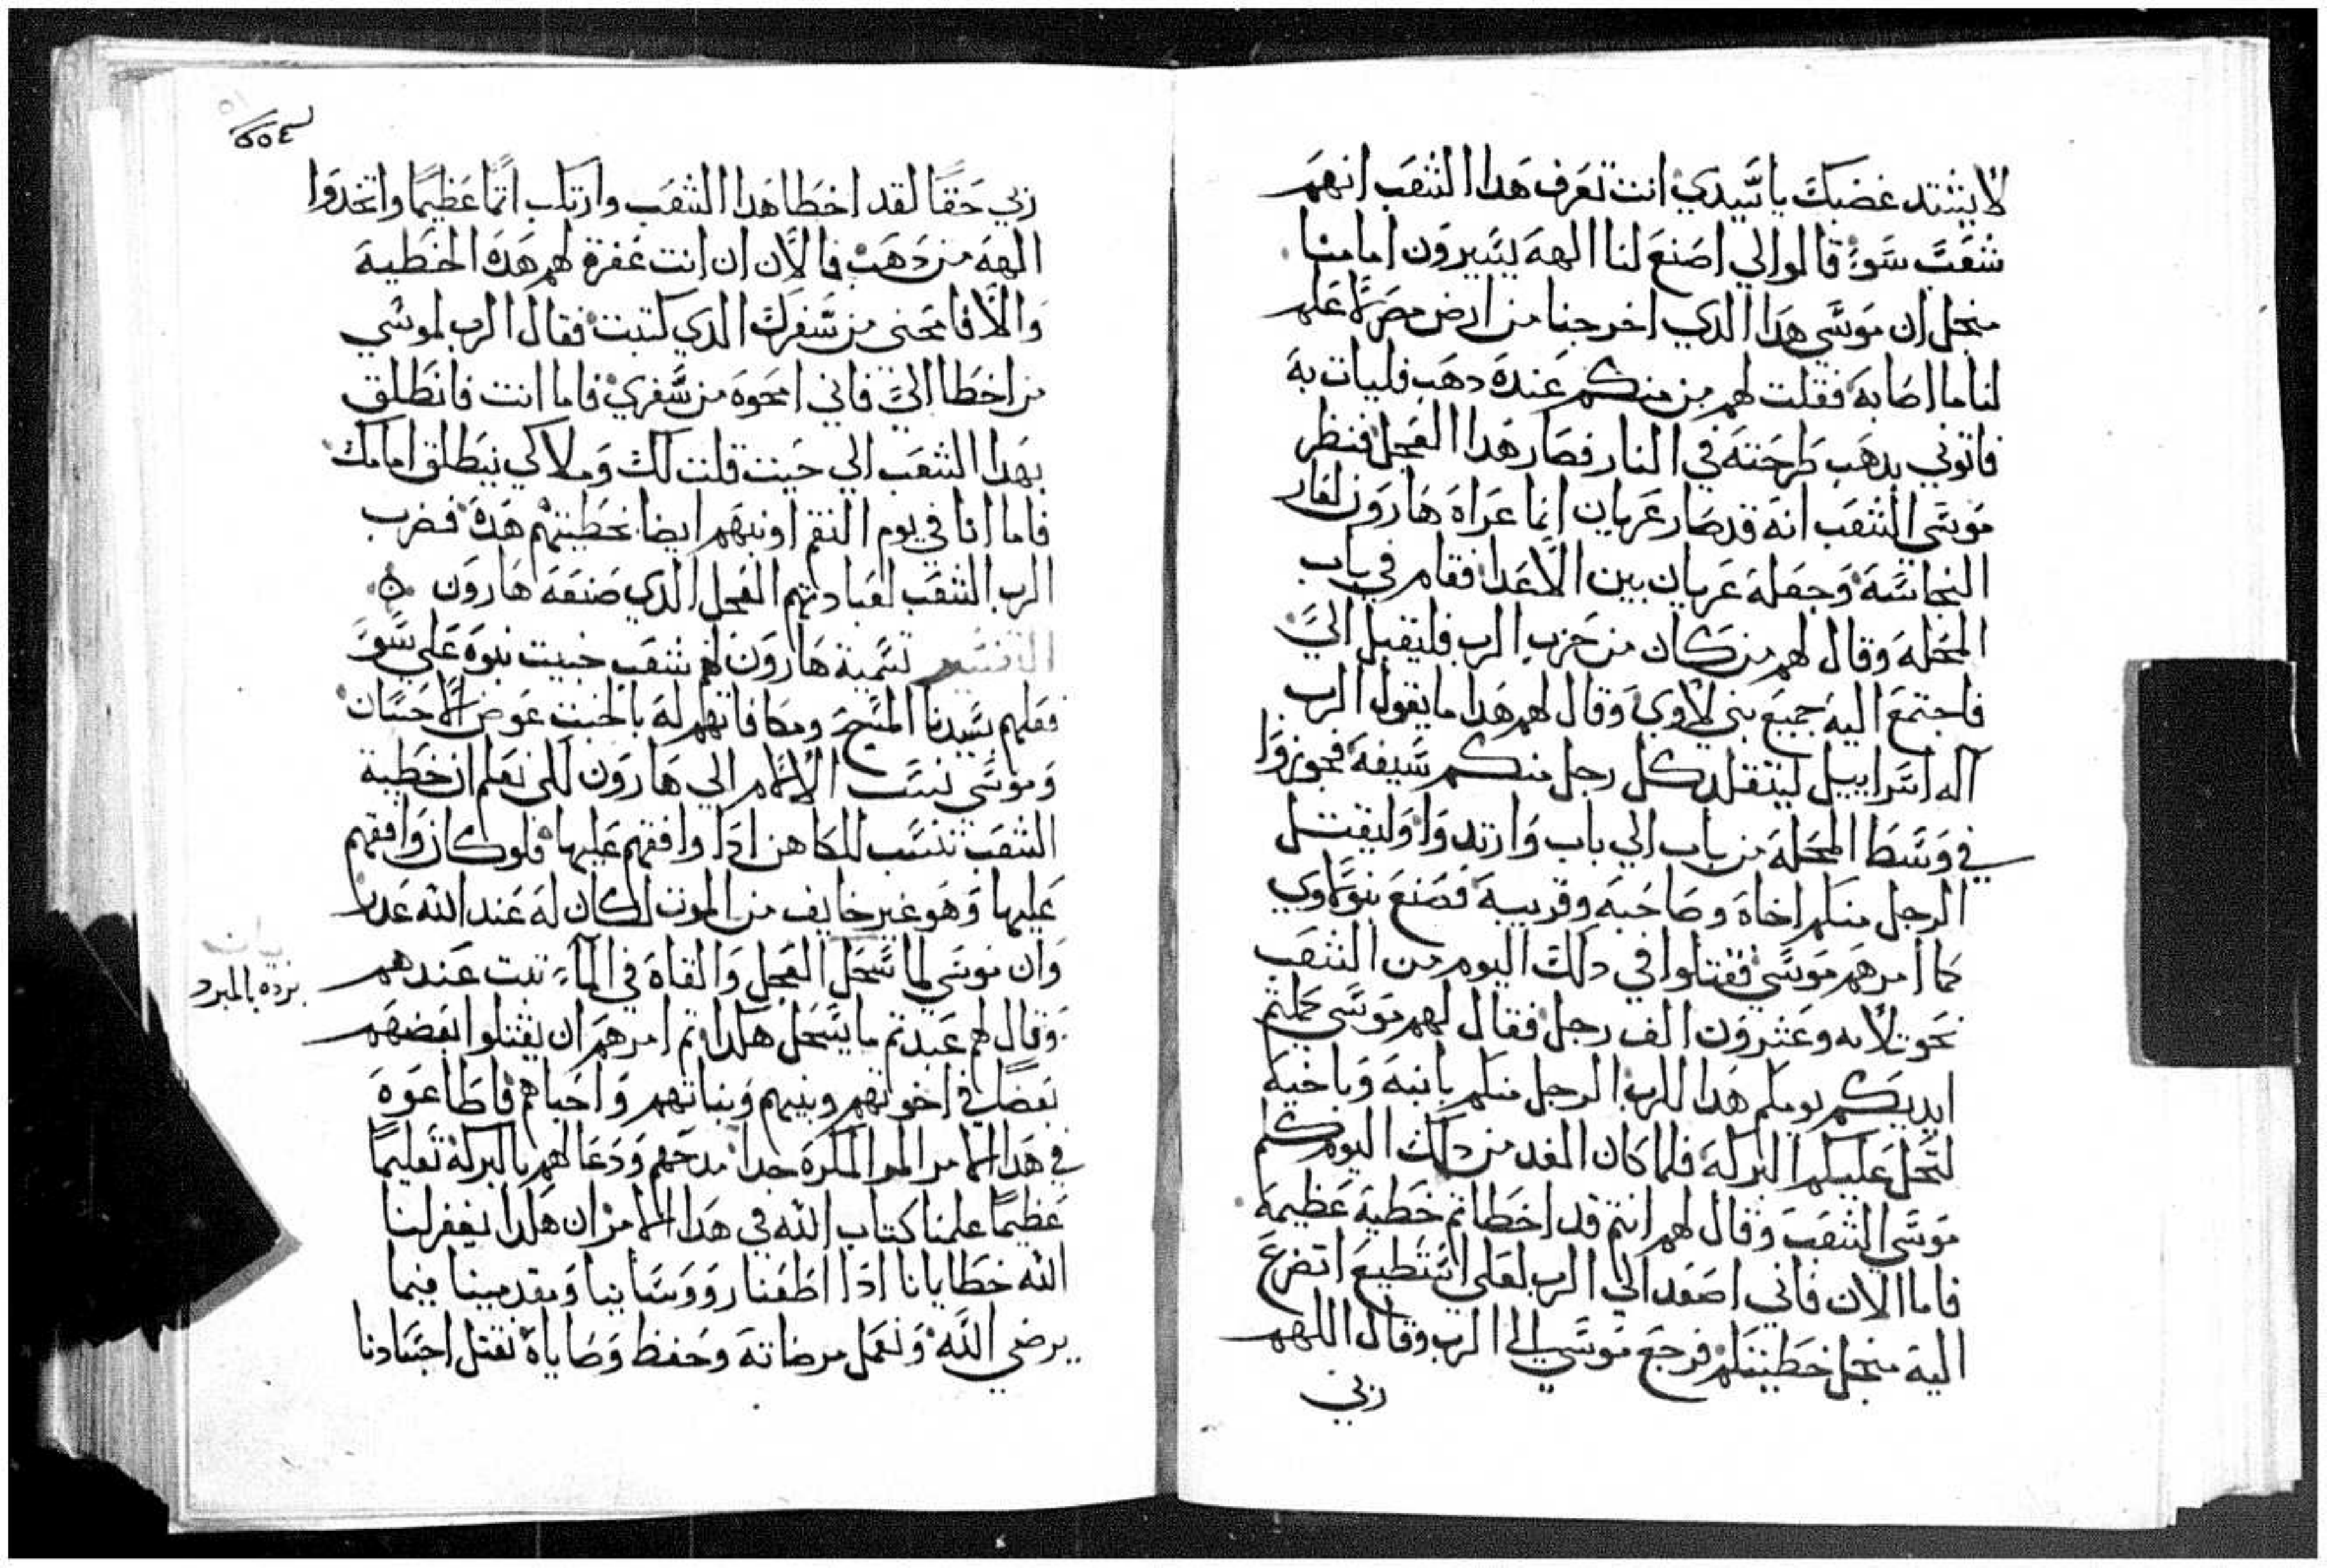 لا يشتد غضبك يا سيدي انت تعرف هدا الشعب انهم
شعب سوء قالوا لي اصنع لنا الهة يسيرون امامنا
منجل ان موسي هدا الدي اخرجنا من ارض مصر لا علم
لنا ما اصابه فقلت لهم من منكم عنده دهب فليات به
فاتوني بدهب طرحته في النار فصار هدا العجل فنظر
موسي الشعب انه قد صار عريان انما عراه هارون لعار
النجاسة وجعله عريان بين الاعدا فقام في باب
المحلة وقال لهم من كان من حزب الرب فليقبل الي
فاجتمع اليه جميع بني لاوي وقال لهم هدا ما يقول الرب
اله اسراييل ليتقلد كل رجل منكم سيفه فجوزوا
في وسط المحلة من باب الي باب وارتدوا وليقتل
الرجل منكم اخاه وصاحبه وقريبه فصنع بنو لاوي
كما امرهم موسي فقتلوا في دلك اليوم من الشعب
نحو تلاته وعشرون الف رجل فقال لهم موسي كملتم
ايديكم يومكم هدا للرب الرجل منكم بابنه وباخيه
لتحل عليكم البركة فلما كان الغد من دلك اليوم كلم
موسي الشعب وقال لهم انتم قد اخطاتم خطية عظيمة
فاما الان فاني اصعد الي الرب لعلي استطيع اتضرع
اليه منجل خطيتكم فرجع موسي الي الرب وقال اللهم
ربي
ربي حقا لقد اخطا هدا الشعب وارتكب اتما عظيما واتخدوا
الهة من دهب فالان ان انت غفرة لهم هده الخطية
والا فامحني من سفرك الدي كتبت فقال الرب لموسي
من اخطا الي فاني امحوه من سفري فاما انت فانطلق
بهدا الشعب الي حيت قلت لك وملاكي ينطلق امامك
فاما انا في يوم النقم اونبهم ايضا بخطيتهم هده فضرب
الرب الشعب لعبادتهم العجل الدي صنعه هارون
التفسير تسمية هارون لهم شعب خبيت نبوه علي سو
فعلهم بسيدنا المسيح ومكافاتهم له بالخبت عوض الاحسان
وموسي نسب الالام الي هارون لكي نعلم ان خطية
الشعب تنسب للكاهن ادا وافقهم عليها فلو كان وافقهم
عليها وهو غير خايف من الموت لكان له عند الله عدر
وان موسي لما سحل العجل والقاه في الماء تبت عندهم
وقال لهم عبدتم ما يسحل هكدا وتم امرهم ان يقتلوا بعضهم
بعضا في اخوتهم وبنيهم وبناتهم واحباهم فاطاعوه
في هدا الامر المر المكره جدا مدحهم ودعا لهم بالبركة تعليما
عظيما علمنا كتاب الله في هدا الامر ان هكدا يغفر لنا
الله خطايانا ادا اطعنا رووسانيا ومقدمينا فيما
يرضي الله ونعمل مرضاته وحفظ وصاياه نقتل اجسادنا
بيان
برده بالمبرد